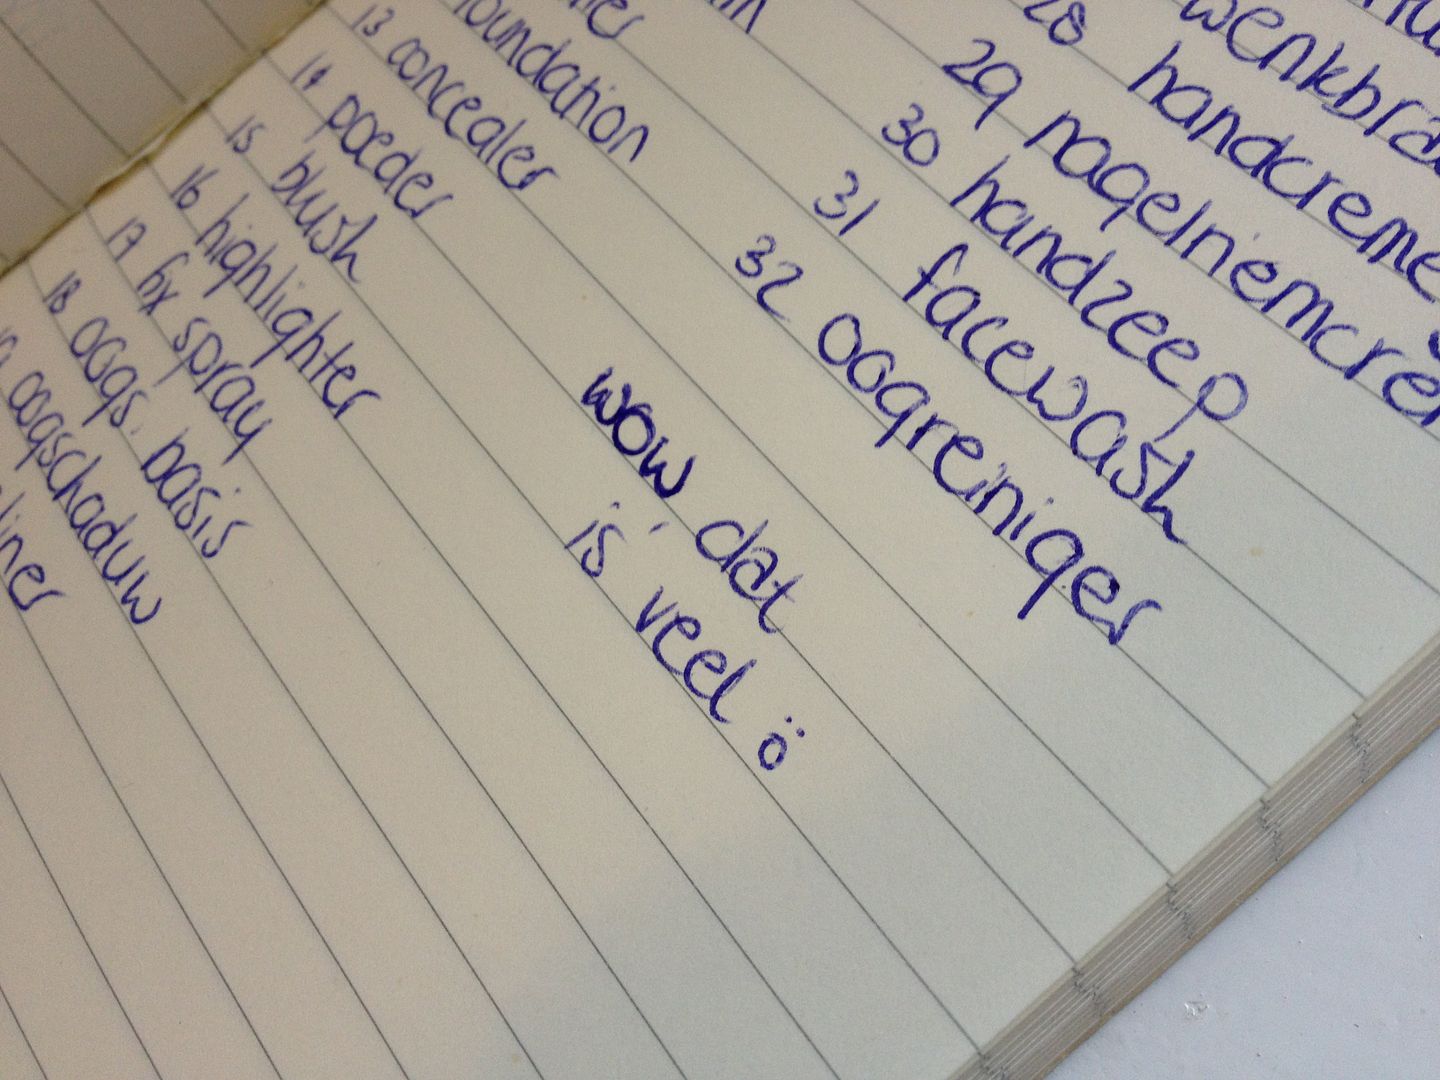 foundation
13 concealer
14 poeder
15 blush
16 highlighter
17 fix spray
18 oogs. basis
oogschaduw
28 handcreme
29 nagelriemcre
30 handzeep
31 facewash
32 oogreiniger
wow, dat
is veel ö